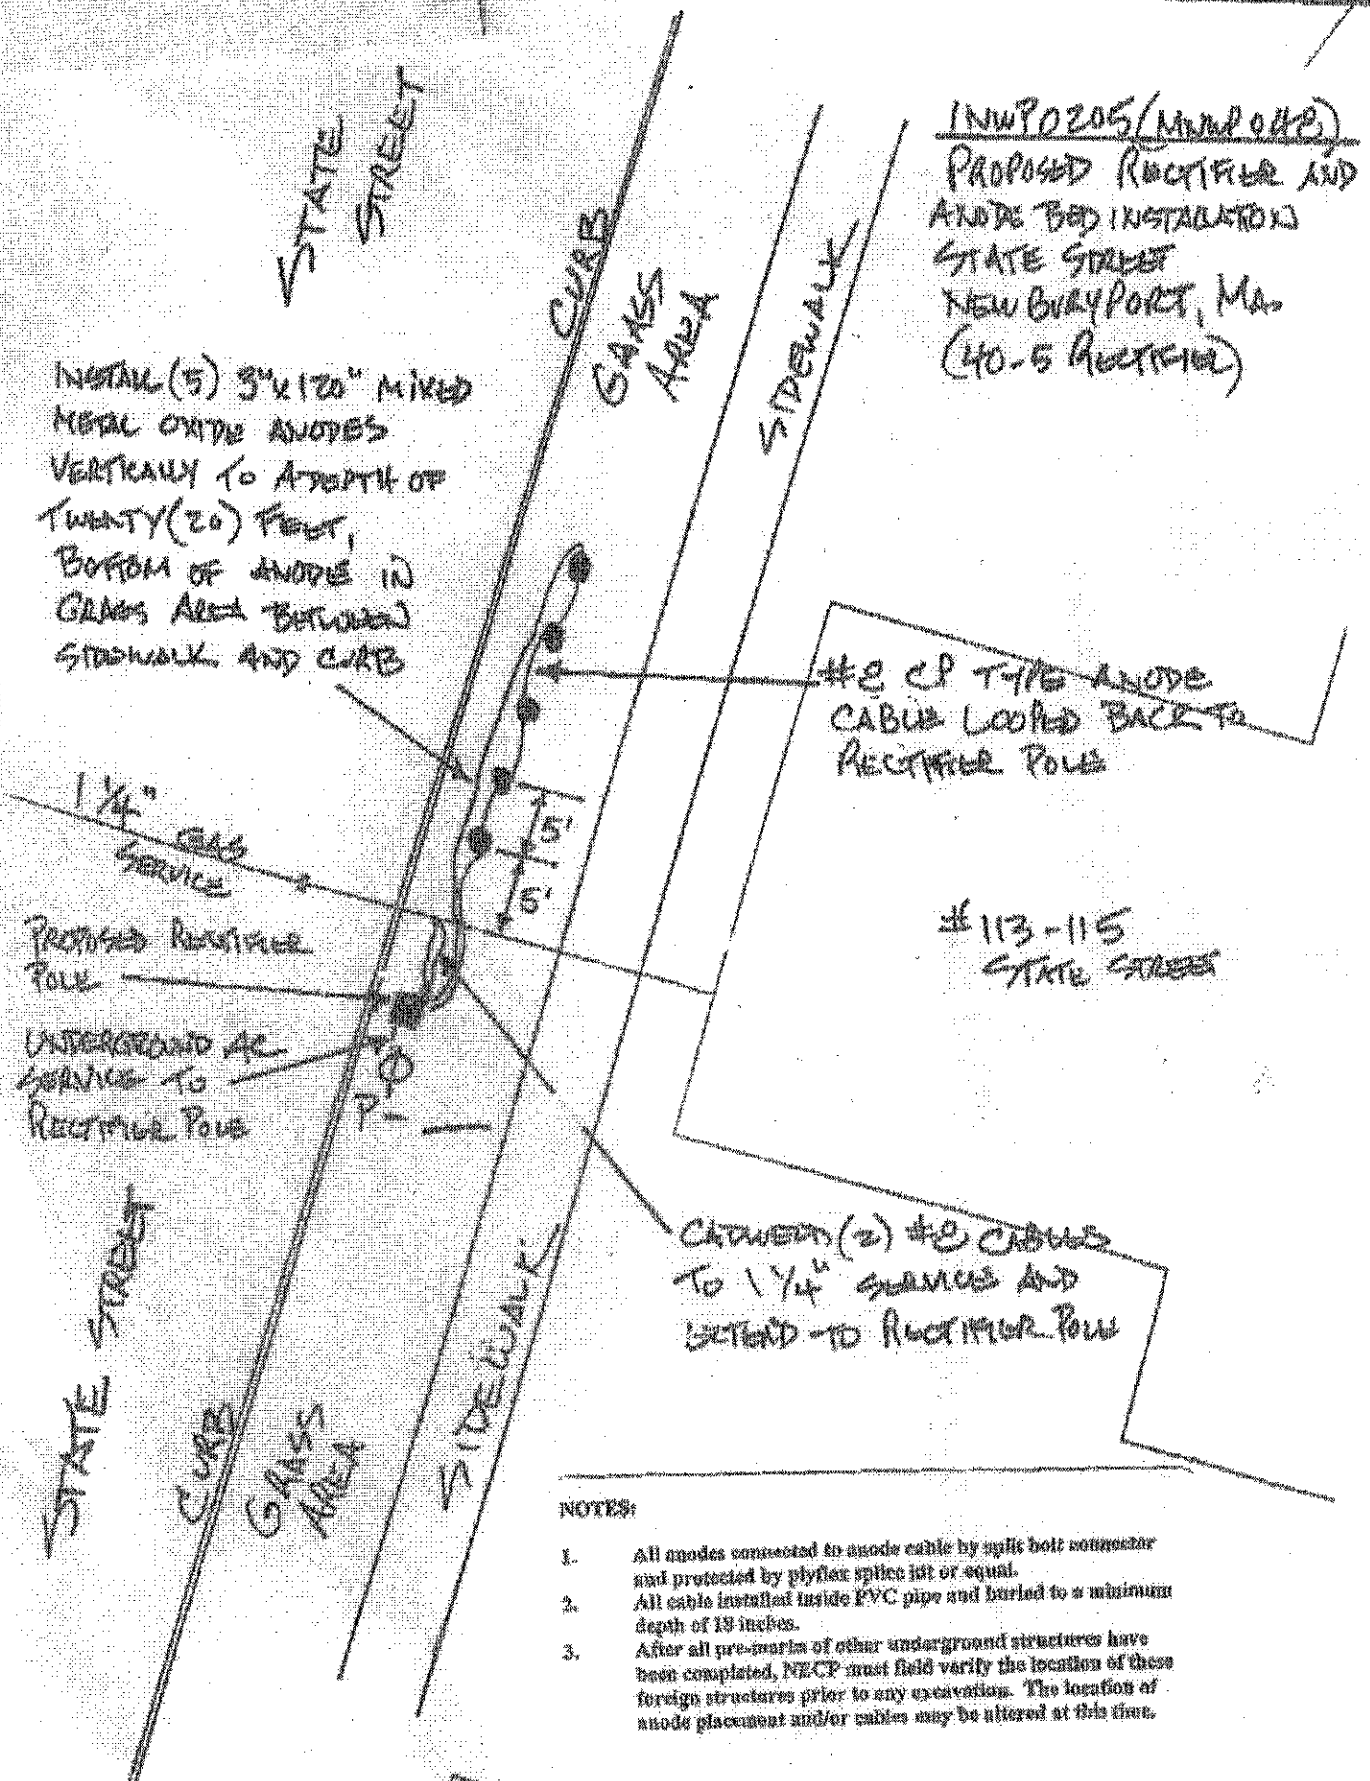 STATE
STREET
CURB
GRASS
AREA
SIDEWALK
PROPOSED RECTIFIER AND
ANODE BED INSTALLATION
STATE STREET
NEWBURYPORT, MA.
(40-5 RECTIFIER)
INSTALL (5) 3" x 120" MIXED
METAL OXIDE ANODES
VERTICALLY TO A DEPTH OF
TWENTY (20) FEET,
BOTTOM OF ANODE IN
GRASS AREA BETWEEN
SIDEWALK AND CURB
#8 CP TYPE ANODE
CABLE LOOPED BACK TO
RECTIFIER POLE
1 1/4"
GAS
SERVICE
5'
5'
PROPOSED RECTIFIER
POLE
#113-115
STATE STREET
UNDERGROUND AC
SERVICE TO
RECTIFIER POLE
P-
CADWELD (2) #8 CABLES
TO 1 1/4" SERVICE AND
EXTEND TO RECTIFIER POLE
STATE STREET
CURB
GRASS
AREA
SIDEWALK
NOTES:
1. All anodes connected to anode cable by split bolt connector
and protected by plyflex splice kit or equal.
2. All cable installed inside PVC pipe and buried to a minimum
depth of 18 inches.
3. After all pre-marks of other underground structures have
been completed, NECP must field verify the location of these
foreign structures prior to any excavation. The location of
anode placement and/or cables may be altered at this time.